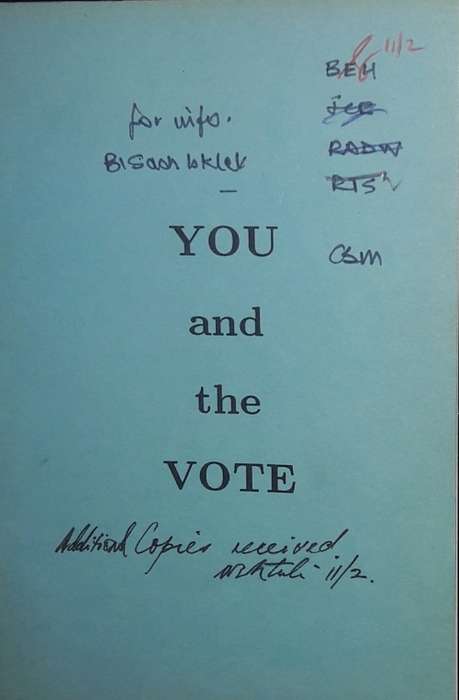 11/2
BEH
for info.
RADW
RTS
YOU
CSM
and
the
VOTE
Additional Copies received
11/2.